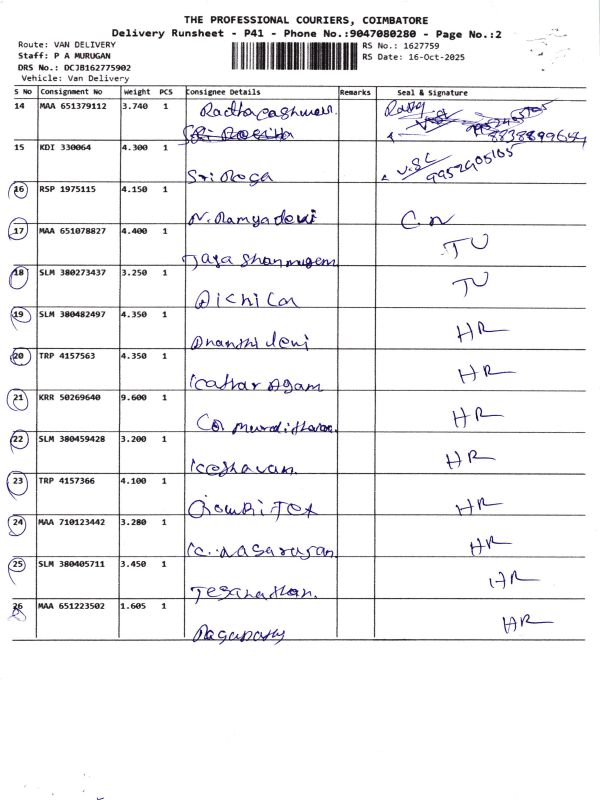 THE PROFESSIONAL COURIERS, COIMBATORE
Delivery Runsheet - P41 - Phone No.:9047080280 - Page No.:2
Route: VAN DELIVERY RS No.: 1627759
Staff: P A MURUGAN RS Date: 16-Oct-2025
DRS No.: DCJB162775902
Vehicle: Van Delivery
S No Consignment No Weight PCS Consignee Details Remarks Seal & Signature
14 MAA 651379112 3.740 1
8838899641
15 KDI 330064 4.300 1 Sri Roja V.SC
9952905105
16 RSP 1975115 4.150 1 N. Ramyadevi C.N
17 MAA 651078827 4.400 1 TU
18 SLM 380273437 3.250 1 TU
19 SLM 380482497 4.350 1 HR
20 TRP 4157563 4.350 1 HR
21 KRR 50269640 9.600 1 HR
22 SLM 380459428 3.200 1 Keshavan. HR
23 TRP 4157366 4.100 1 HR
24 MAA 710123442 3.280 1 HR
25 SLM 380405711 3.450 1 HR
26 MAA 651223502 1.605 1 HR